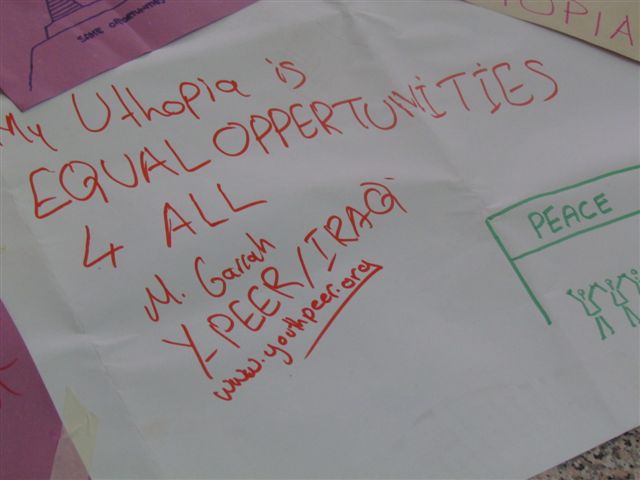 SAME OPORTUNITIES
TOPIA
My Uthopia is
EQUAL OPPERTUNITIES
4 ALL
M. Garrah
Y-PEER/IRAQ
www.youthpeer.org
PEACE